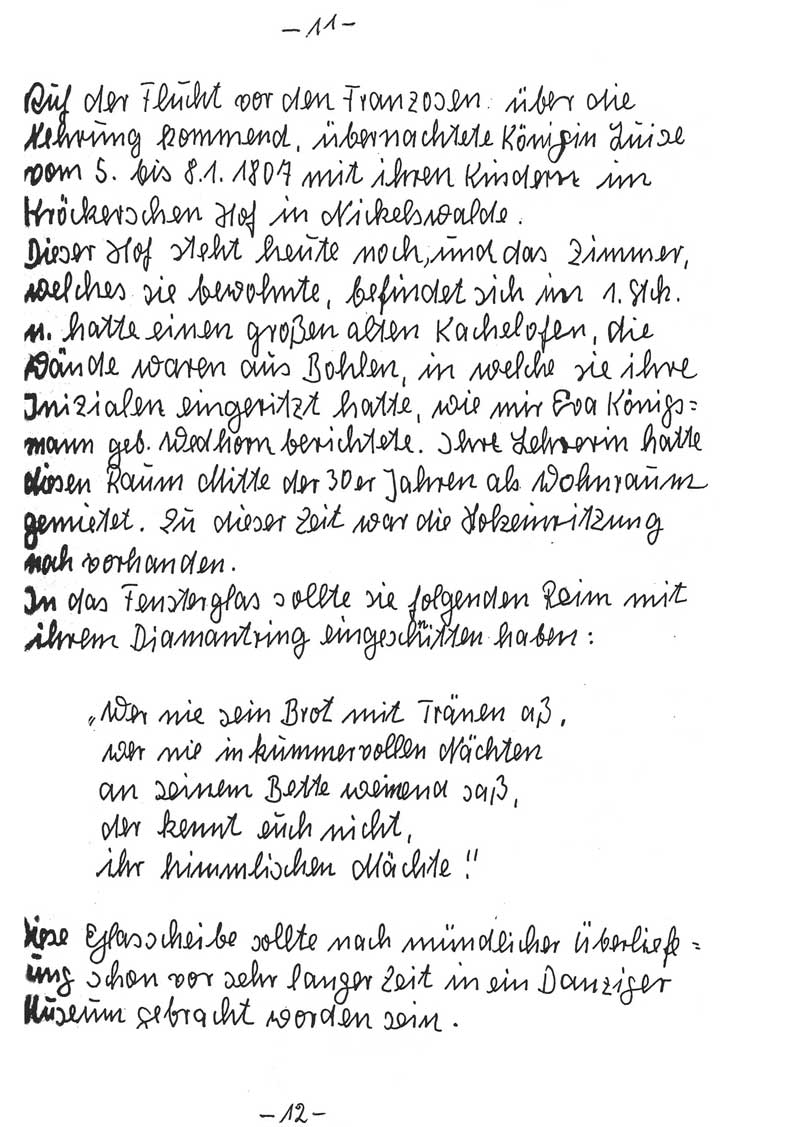 - 11 -
Auf der Flucht vor den Franzosen über die
Nehrung kommend, übernachtete Königin Luise
vom 5. bis 8.1.1807 mit ihren Kindern im
Kröckerschen Hof in Nickelswalde.
Dieser Hof steht heute noch, und das Zimmer,
welches sie bewohnte, befindet sich im 1. Stck.
u. hatte einen großen alten Kachelofen, die
Wände waren aus Bohlen, in welche sie ihre
Inizialen eingeritzt hatte, wie mir Eva Königs=
mann geb. Wedhorn berichtete. Ihre Lehrerin hatte
diesen Raum Mitte der 30er Jahren als Wohnraum
gemietet. Zu dieser Zeit war die Holzeinritzung
noch vorhanden.
In das Fensterglas sollte sie folgenden Reim mit
ihrem Diamantring eingeschnitten haben:
„Wer nie sein Brot mit Tränen aß,
wer nie in kummervollen Nächten
an seinem Bette weinend saß,
der kennt euch nicht,
ihr himmlischen Mächte!"
Diese Glasscheibe sollte nach mündlicher Überliefe=
ung schon vor sehr langer Zeit in ein Danziger
Museum gebracht worden sein.
- 12 -